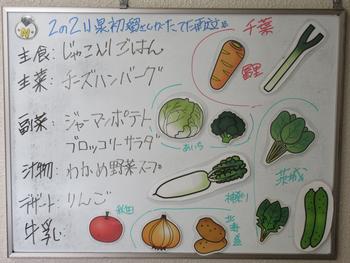 2の2
主食:じゃこ入りごはん
主菜:チーズハンバーグ
副菜:ジャーマンポテト
ブロッコリーサラダ
汁物:わかめ野菜スープ
デザート:りんご
牛乳
千葉
あいち
茨城
神奈川
秋田
北海道